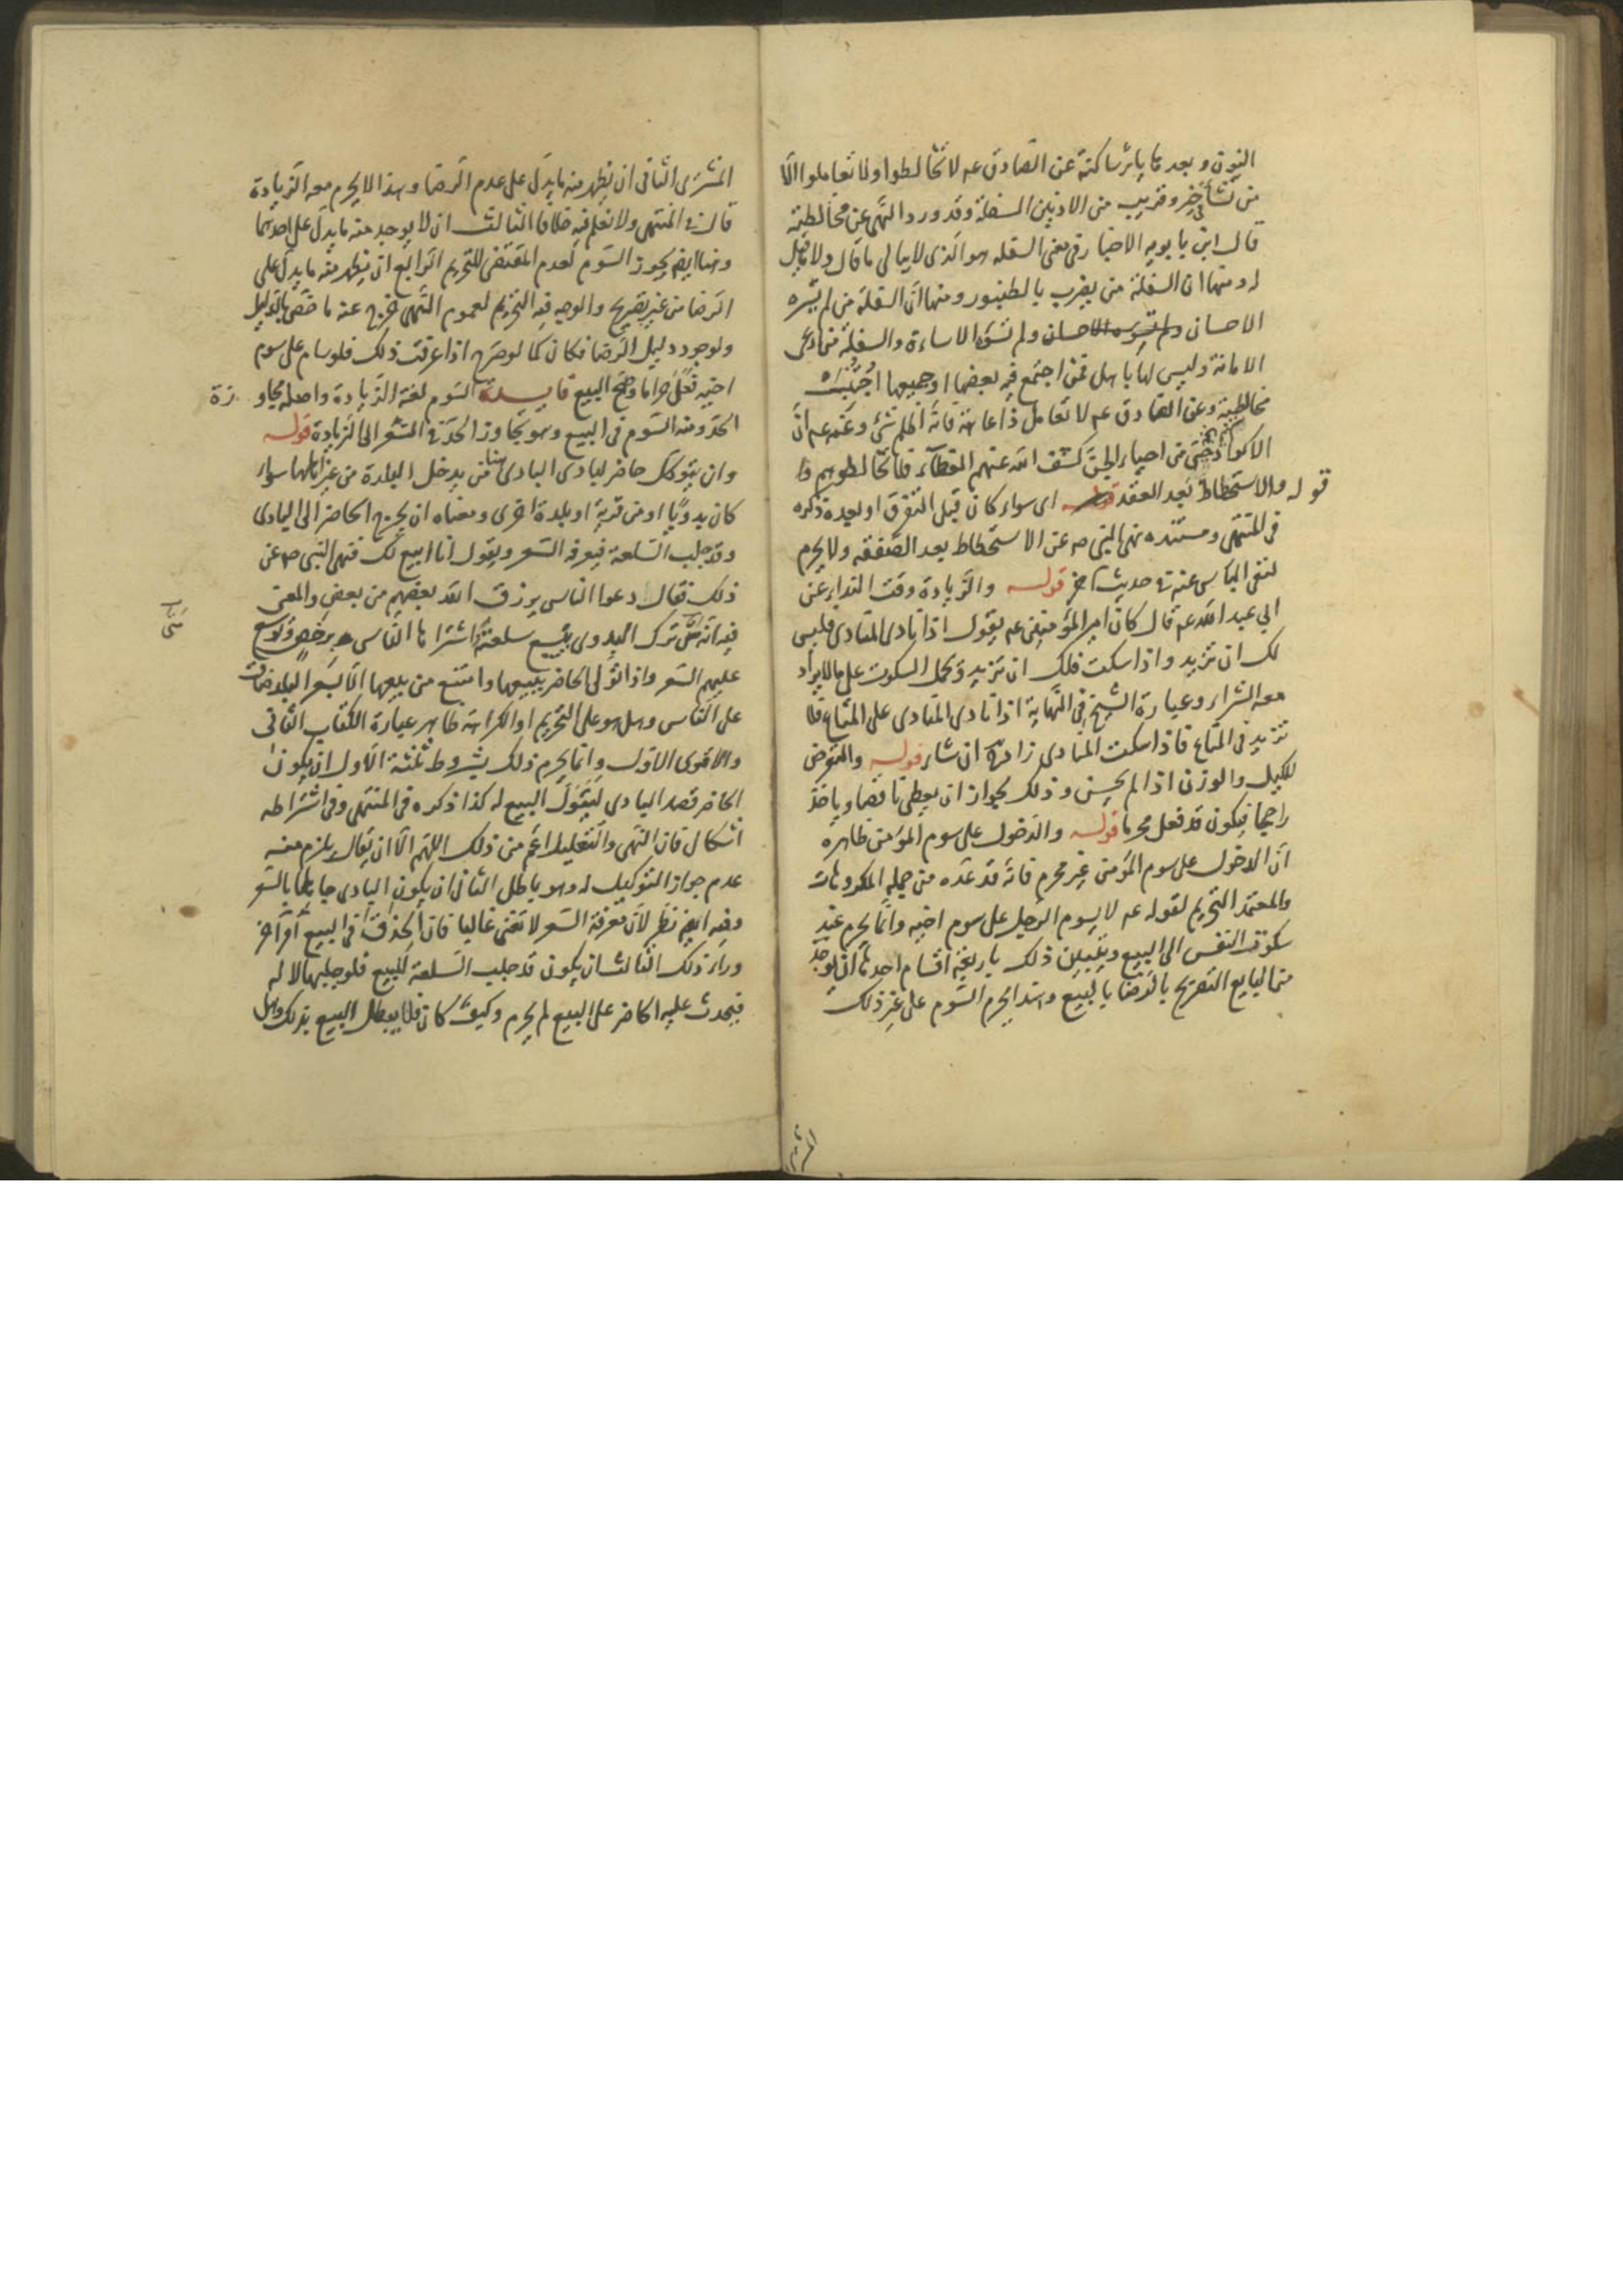 النون و بعدها ياء ساكنة عن الصادق عه لا تخالطوا ولا تعاملوا الا
من نشأ في خير وقريب من الادنين السفلة وقد ورد النهى عن مخالطته
قال ابن بابويه الاخبار في معنى السفله هو الذى لا يبالى ما قال ولا ما قيل
له ومنها ان السفلة من يضرب بالطنبور ومنها ان السفلة من لم يسره
الاحسان ولم تسوه الاساءة والسفلة من ادعى
الامانة وليس لها باهل فمن اجتمع فيه بعضها او جميعها اجتنبت
مخالطته وعن الصادق عه لا تعامل ذا عاهة فانه اظلم شئ وعنه عه ان
الاكراد حى من احياء الجن كشف الله عنهم الغطاء فلا تخالطوهم
قوله والاستحطاط بعد العقد اى سواء كان قبل التفرق او بعده ذكره
في المنتهى ومستنده نهى النبى صه عن الاستحطاط بعد الصفقه ولا يحرم
لنفى الباس عنه في حديث اخر قوله والزيادة وقت النداء عن
ابي عبد الله عه قال كان امير المؤمنين عه يقول اذا نادى المنادى فليس
لك ان تزيد واذا سكت فلك ان تزيد ويحمل السكوت على ما لا يراد
معه الشراء وعبارة الشيخ في النهاية اذا نادى المنادى على المتاع فلا
تزيد في المتاع فاذا سكت المنادى زاد ان شاء قوله والتعرض
للكيل والوزن اذا لم يحسن وذلك لجواز ان يعطى ناقصا وياخذ
راجحا فيكون قد فعل محرما قوله والدخول على سوم المؤمن ظاهره
ان الدخول على سوم المؤمن غير محرم فانه قد عده من جملة المكروهات
والمعتمد التحريم لقوله عه لا يسوم الرجل على سوم اخيه وانما يحرم عند
سكون النفس الى البيع ويتبين ذلك باربعة اقسام احدها ان يوجد
من البايع التصريح بالرضا بالبيع وهذا يحرم السوم على غير ذلك
المشترى
المشترى الثانى ان يظهر منه ما يدل على عدم الرضا وهذا لا يحرم معه الزيادة
قال في المنتهى ولا نعلم فيه خلافا الثالث ان لا يوجد منه ما يدل على احدهما
وهنا ايضا يجوز السوم لعدم المقتضى للتحريم الرابع ان يظهر منه ما يدل على
الرضا من غير تصريح والوجه فيه التحريم لعموم النهى خرج عنه ما خص بالدليل
ولوجود دليل الرضا فكان كما لو صرح اذا عرفت ذلك فلو سام على سوم
اخيه فعل حراما وصح البيع فايدة السوم لغة الزيادة واصله مجاوزة
الحد ومنه السوم في البيع وهو تجاوز الحد في السعر الى الزيادة قوله
وان يتوكل حاضر لبادى البادى هنا من يدخل البلدة من غير اهلها سواء
كان بدويا او من قرية او بلدة اخرى ومعناه ان يخرج الحاضر الى البادى
وقد جلب السلعة فيعرفه السعر ويقول انا ابيع لك فنهى النبى صه عن
ذلك فقال دعوا الناس يرزق الله بعضهم من بعض والمعنى
فيه انه متى ترك البدوى يبيع سلعته اشتراها الناس برخص ويوسع
عليهم السعر واذا تولى الحاضر بيعها وامتنع من بيعها الا بسعر البلد ضاق
على الناس وهل هو على التحريم او الكراهة ظاهر عبارة الكتاب الثانى
والاقوى الاول وانما يحرم ذلك بشروط ثلثة الاول ان يكون
الحاضر قصد البادى ليتولى البيع له كذا ذكره في المنتهى وفي اشتراطه
اشكال فان النهى والتعليل اعم من ذلك اللهم الا ان يقال يلزم منه
عدم جواز التوكيل له وهو باطل الثانى ان يكون البادى جاهلا بالسعر
وفيه ايضا نظر لان معرفة السعر لا تغنى غالبا فان الحذق في البيع امر اخر
وراء ذلك الثالث ان يكون قد جلب السلعة للبيع فلو جلبها لا له
فيحدث عليه الحاضر على البيع لم يحرم وكيف كان فلا يبطل البيع بذلك وهل